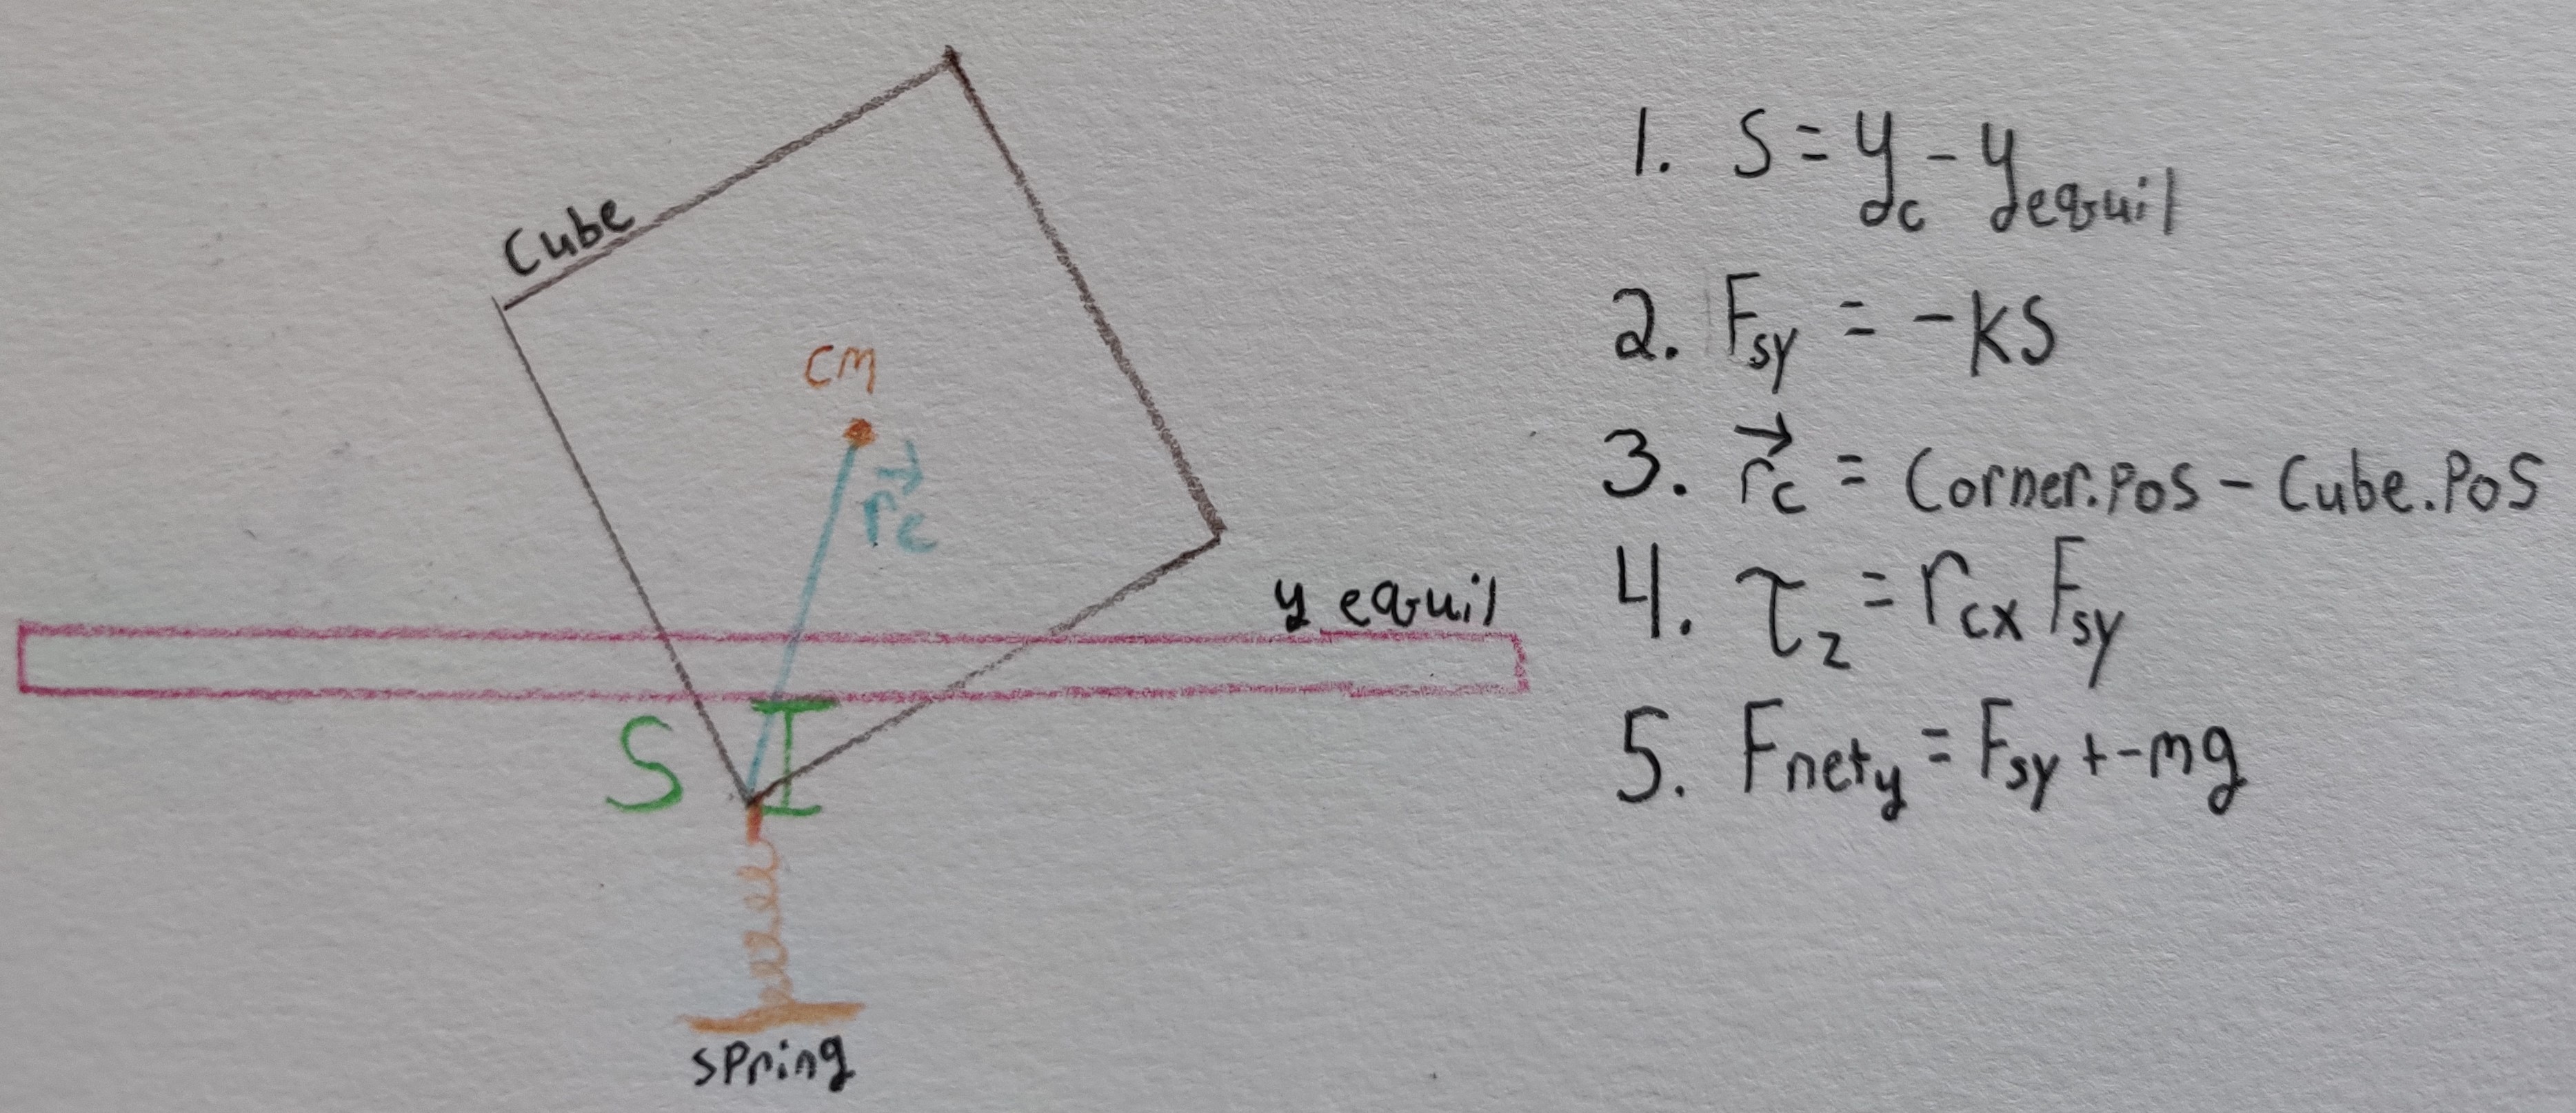 Cube
CM
r⃗c
y equil
S
spring
1. S = yc - yequil
2. Fsy = -KS
3. r⃗c = Corner.Pos - Cube.Pos
4. τz = rcx Fsy
5. Fnety = Fsy + -mg